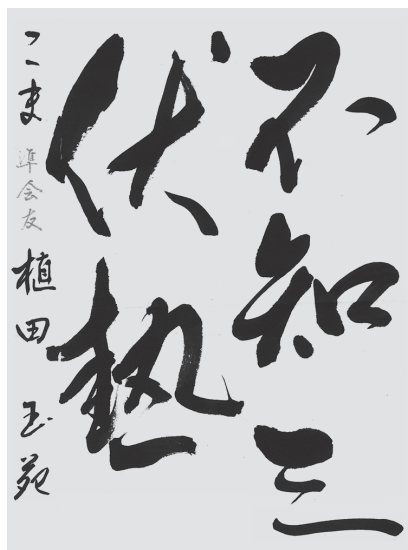 不知三
伏熱
こま 準会友 植田 玉苑